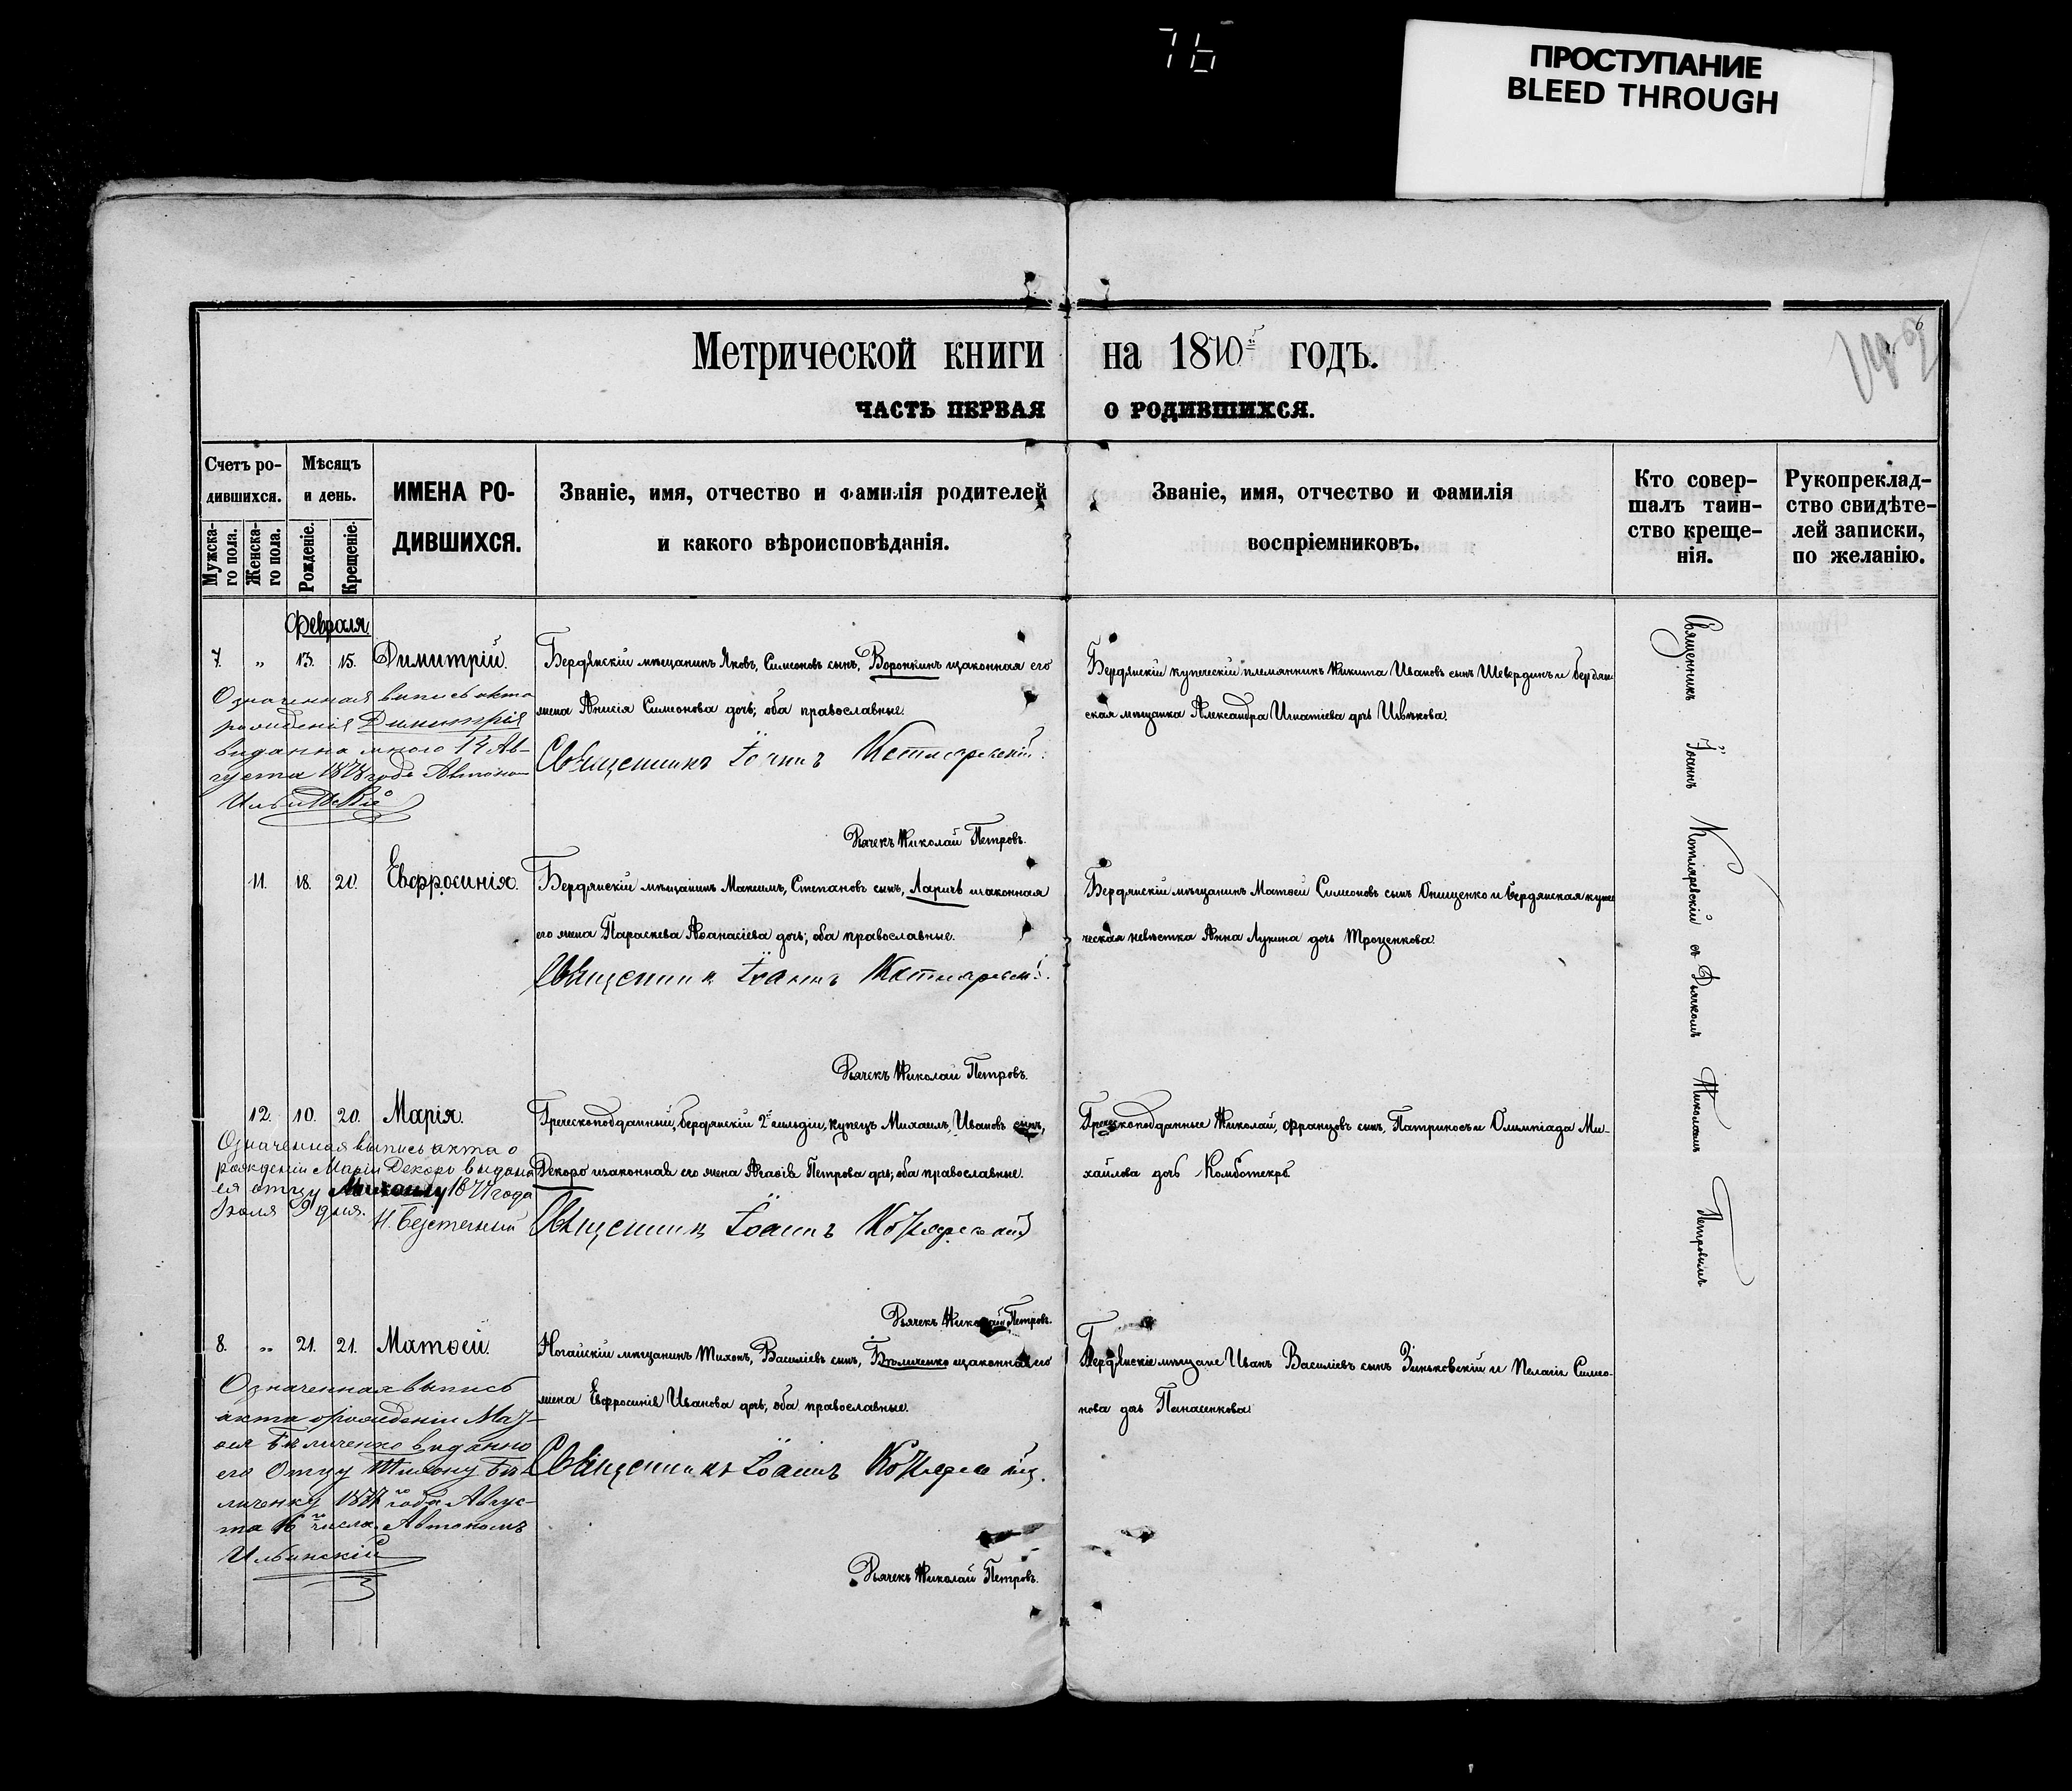 76
ПРОСТУПАНИЕ
BLEED THROUGH
6
Метрической книги на 1870й годъ.
ЧАСТЬ ПЕРВАЯ О РОДИВШИХСЯ.
Счетъ ро-
дившихся.
Мужска-
го пола.
Женска-
го пола.
Мѣсяцъ
и день.
Рожденіе.
Крещеніе.
ИМЕНА РО-
ДИВШИХСЯ.
Званіе, имя, отчество и фамилія родителей
и какого вѣроисповѣданія.
Званіе, имя, отчество и фамилія
воспріемниковъ.
Кто совер-
шалъ таин-
ство креще-
нія.
Рукоприклад-
ство свидѣте-
лей записки,
по желанію.
Февраля
7. „ 13. 15. Димитрій.
Бердянскій мѣщанинъ Яковъ, Симеоновъ сынъ, Воронкинъ изаконная его
жена Анисія Симеонова дочь; оба православные.
Священникъ Іоаннъ Котляревскій.
Дьячекъ Николай Петровъ.
Бердянскій купеческій племянникъ Никита Ивановъ сынъ Шевердинъ и бердян-
ская мѣщанка Александра Игнатіева дочь
Означенная выпись акта
рожденія Димитрія
выданна мною 14 Ав-
густа 1878 года Автоном
Ильинскій
11. 18. 20. Евфросинія.
Бердянскій мѣщанинъ Максимъ, Степановъ сынъ, Ларичъ изаконная
его жена Параскева Афанасіева дочь; оба православные.
Священникъ Іоаннъ Котляревскій.
Дьячекъ Николай Петровъ.
Бердянскій мѣщанинъ Матѳей Симеоновъ сынъ Онищенко и бердянская купе-
ческая невѣстка Анна Лукина дочь Троценкова.
12. 10. 20. Марія.
Греческоподданный, бердянскій 2й гильдіи, купецъ Михаилъ, Ивановъ сынъ,
Декоро изаконная его жена Агаѳія Петрова дочь; оба православные.
Священникъ Іоаннъ Котляревскій
Дьячекъ Николай Петровъ.
Греческоподданные Николай, Францовъ сынъ, Патрикосъ и Олимпіада Ми-
хайлова дочь
Означенная выпись акта о
рожденіи Маріи Декоро выдана
ея отцу 1877 года
Іюля 9 дня.
8. „ 21. 21. Матѳей.
Ногайскій мѣщанинъ Тихонъ, Василіевъ сынъ, Бѣличенко изаконная его
жена Евфросинія Иванова дочь; оба православные.
Священникъ Іоаннъ Котляревскій.
Дьячекъ Николай Петровъ.
Бердянскіе мѣщане Иванъ Василіевъ сынъ Зиньковскій и Пелагія Симео-
нова дочь Панасенкова.
Означенная выпись
акта о рожденіи Мат-
ѳея Бѣличенко выданно
его Отцу Тихону Бѣ-
личенку года Авгус-
та 16го числа. Автономъ
Ильинскій
Священникъ Іоаннъ Котляревскій съ Дьячкомъ Николаемъ Петровымъ